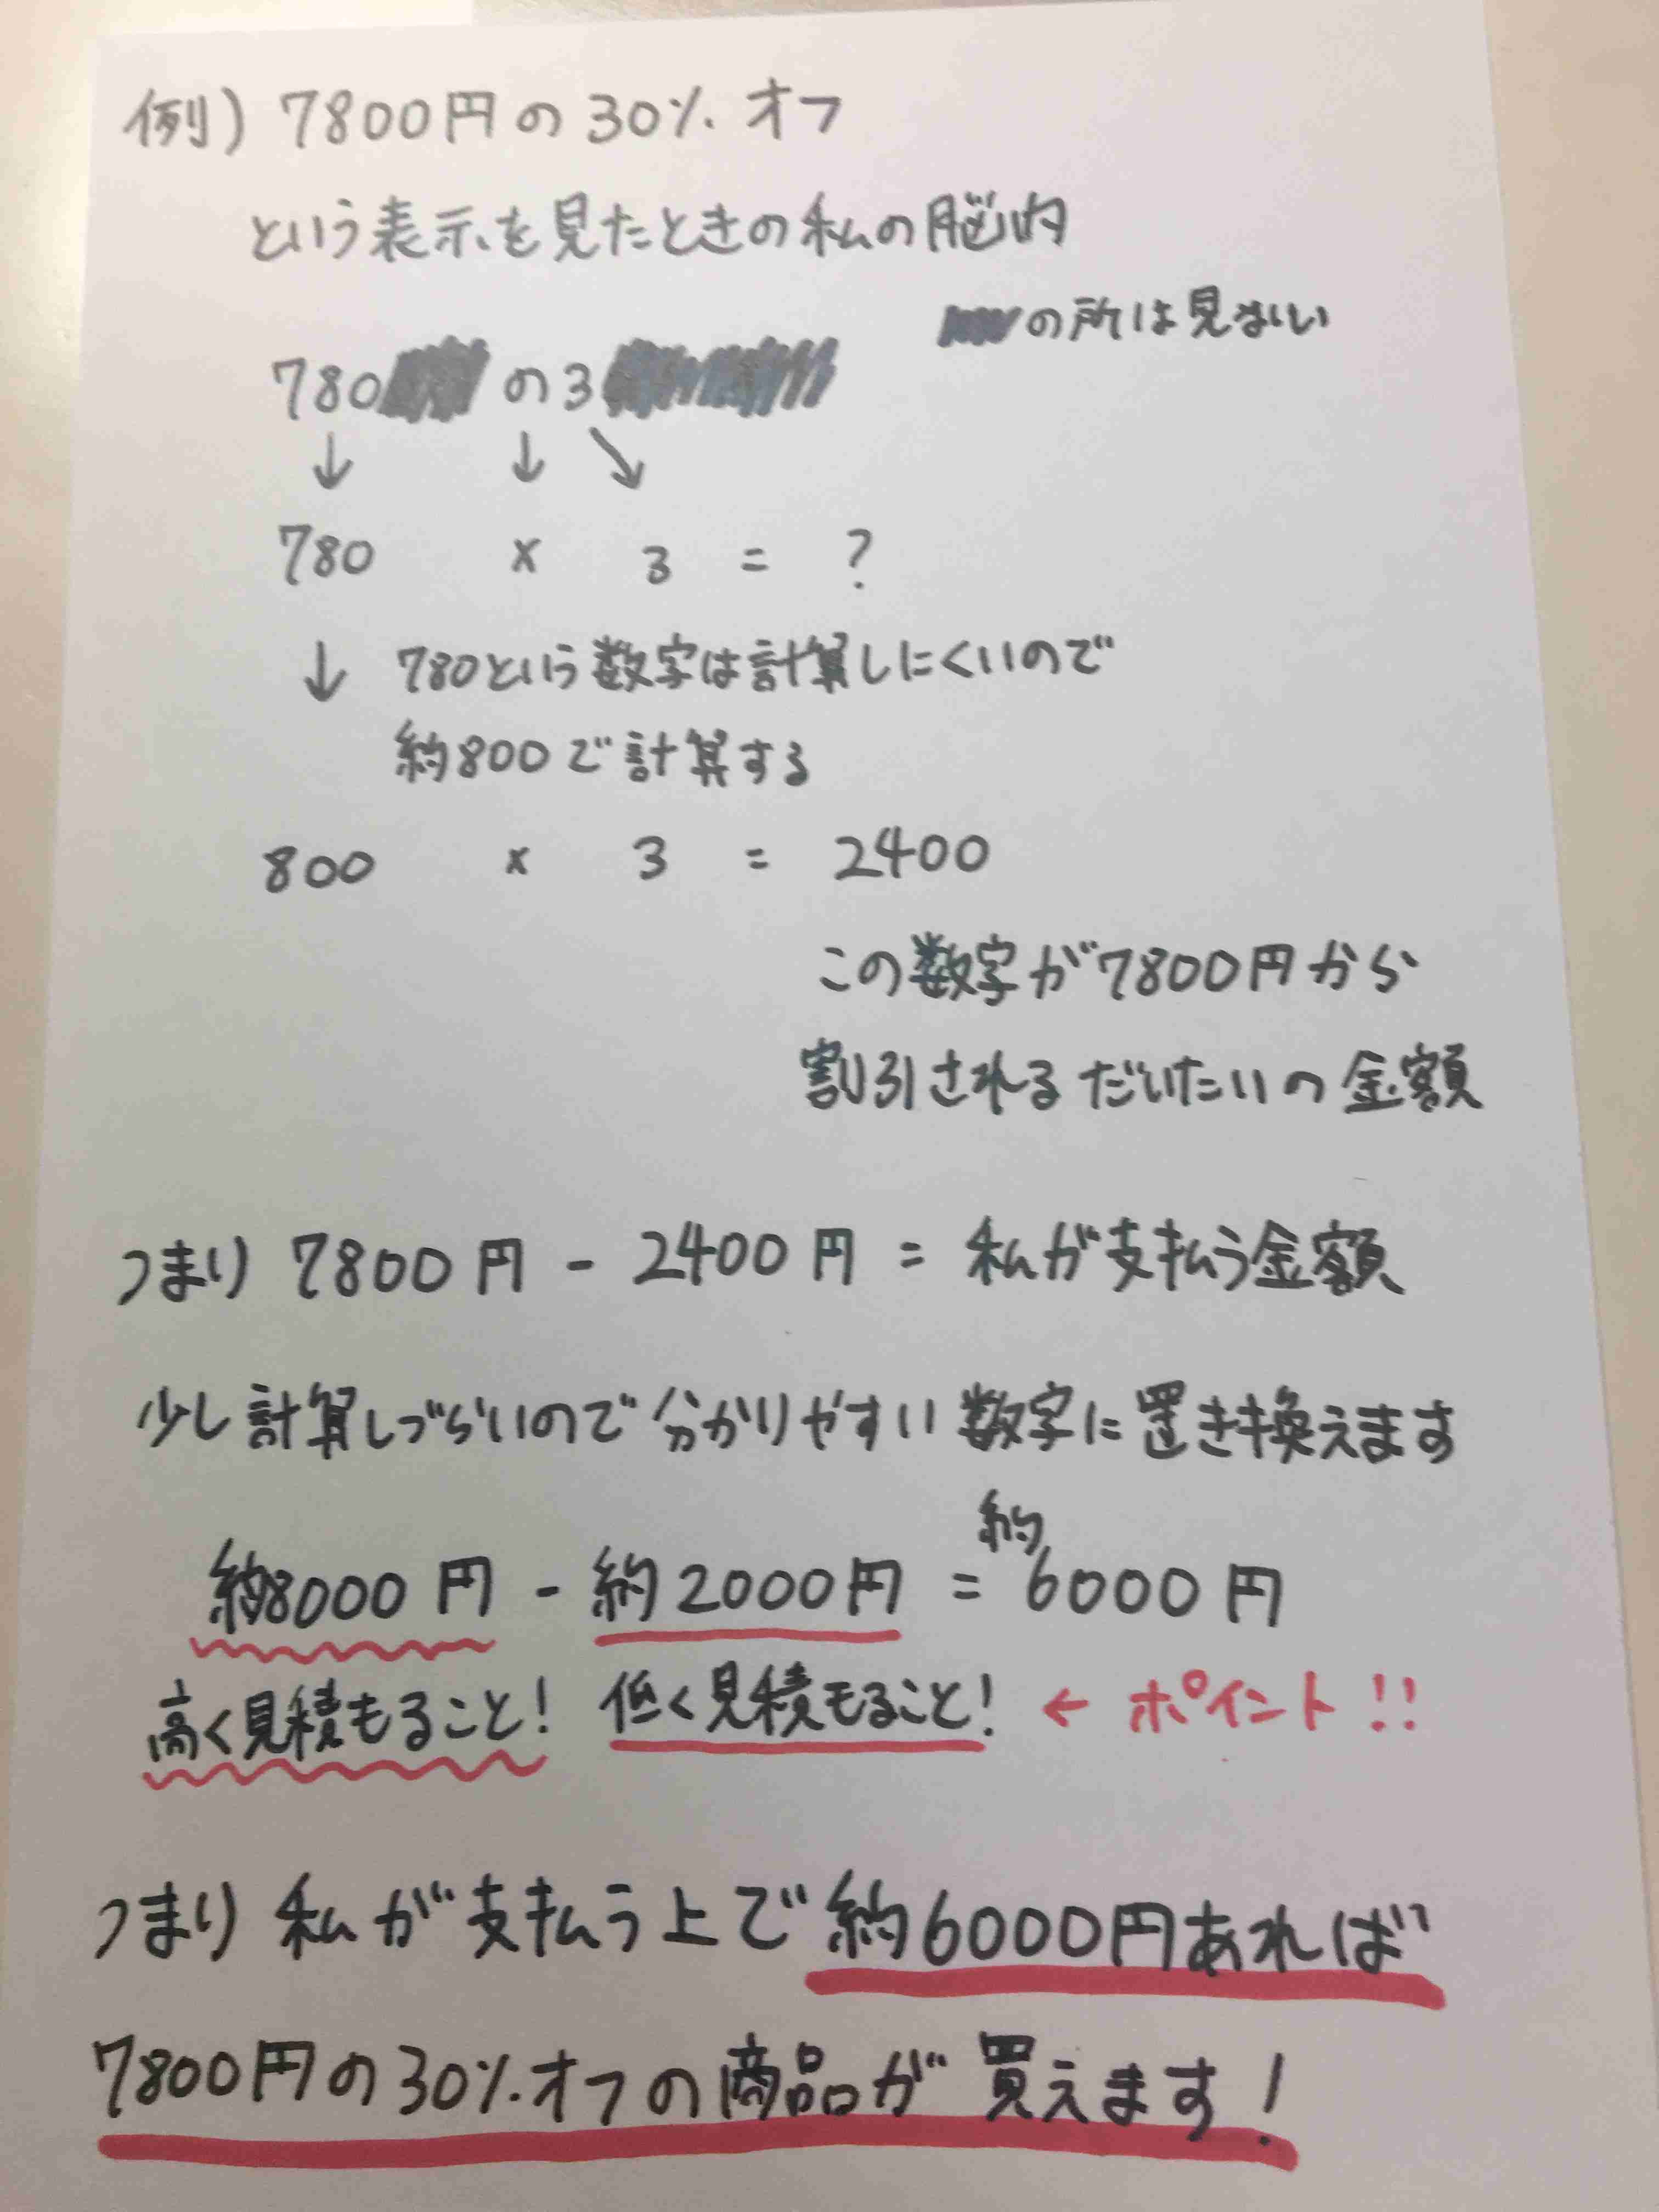 例) 7800円の30% オフ
という表示を見たときの私の脳内
の所は見ない
780 の3
↓ ↓ ↘
780 × 3 = ?
↓ 780という数字は計算しにくいので
約800で計算する
800 × 3 = 2400
この数字が7800円から
割引される だいたいの金額
つまり 7800円 - 2400円 = 私が支払う金額
少し計算しづらいので分かりやすい数字に置き換えます
約8000円 - 約2000円 = 約6000円
高く見積もること! 低く見積もること! ← ポイント!!
つまり私が支払う上で約6000円あれば
7800円の30%オフの商品が買えます!